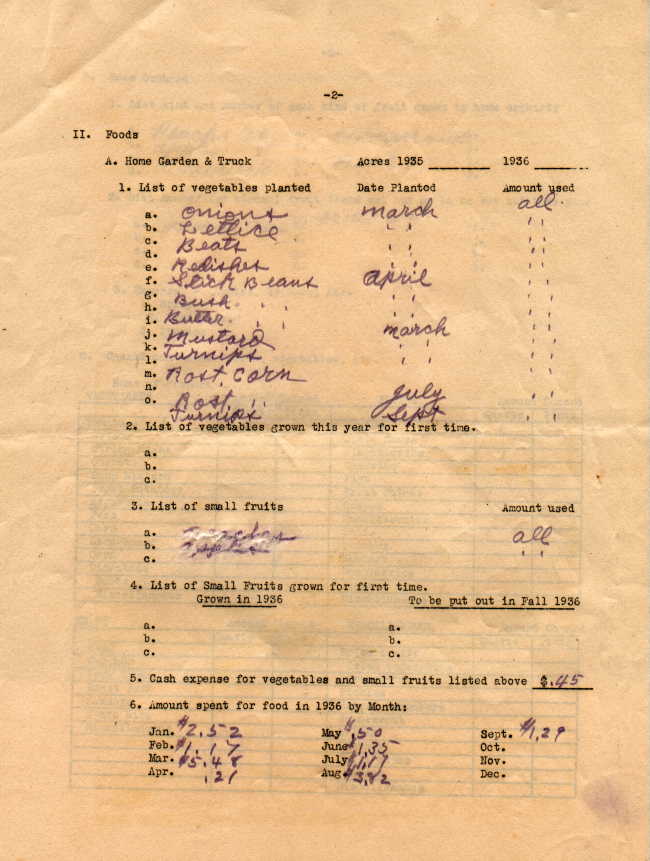 -2-
II. Foods
A. Home Garden & Truck Acres 1935 1936
1. List of vegetables planted Date Planted Amount used
a. Onions March all
b. Lettice " " " "
c. Beats " " " "
d.
e. Redishes " "
f. Stick Beans April " "
g.
h. Bush " " " " " "
i. Butter " " " " " "
j. Mustard March " "
k. Turnips " " " "
l.
m. Rost. Corn " "
n. July " "
o. Rost. " "
Turnips Sept " "
2. List of vegetables grown this year for first time.
a.
b.
c.
3. List of small fruits Amount used
a. all
b. " "
c.
4. List of Small Fruits grown for first time.
Grown in 1936 To be put out in Fall 1936
a. a.
b. b.
c. c.
5. Cash expense for vegetables and small fruits listed above $.45
6. Amount spent for food in 1936 by Month:
Jan. $2.52 May $.50 Sept. $1.29
Feb. $1.17 June $1.35 Oct.
Mar. $5.48 July Nov.
Apr. .21 Aug. $3.82 Dec.